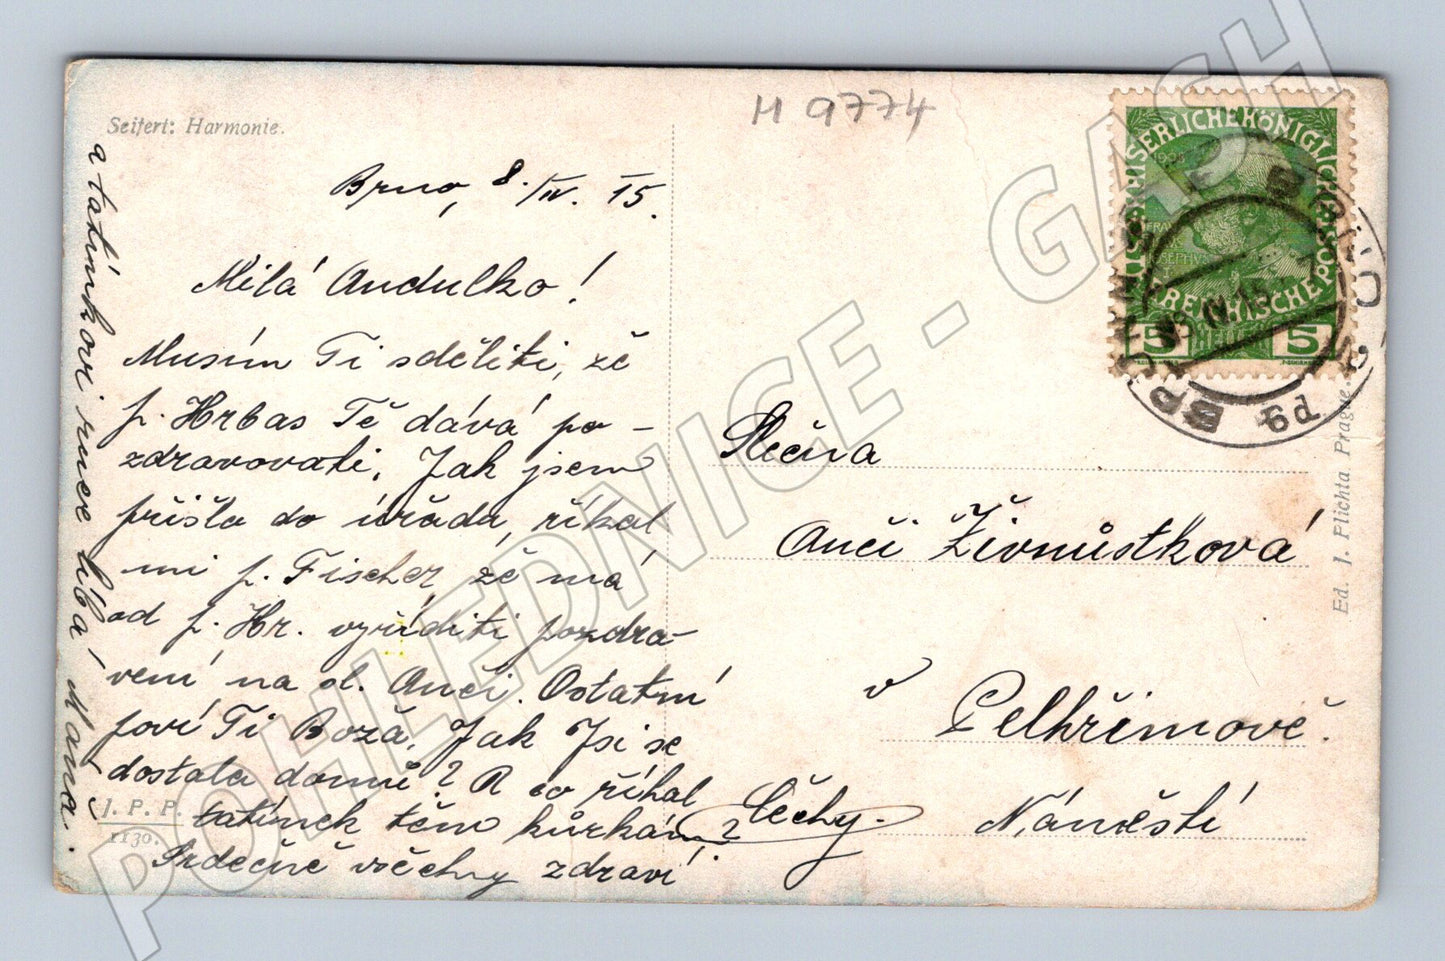 Seifert: Harmonie.
H 9774
Brno, 8./IV. 15.
Milá Andulko!
Musím Ti sděliti, že
p. Hrbas Tě dává po-
zdravovati. Jak jsem
přišla do úřadu, říkal
mi p. Fischer, že má
od p. Hr. vyříditi pozdra-
vení na sl. Anči. Ostatní
poví Ti Boža. Jak Jsi se
dostala domů? A co říkal
tatínek těm kůrkám?
Srdečně všechny zdraví
a tatínkovi ruce líbá Máňa.
J. P. P.
1130.
KAISERLICHE KÖNIGLICHE
ÖSTERREICHISCHE POST
1908
5 HELLER 5
BRÜNN
BRNO
8 IV 15
6d
Slečna
Anči Živnůstková
v Pelhřimově.
Čechy. Náměstí
Ed. J. Plichta Prague.
POHLEDNICE - GASH